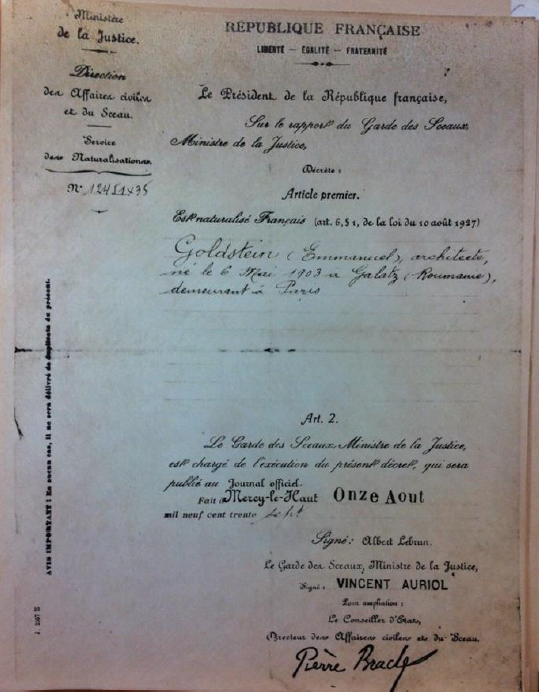 Ministère
de la Justice.
Direction
des Affaires civiles
et du Sceau.
Service
des Naturalisations.
N°
RÉPUBLIQUE FRANÇAISE
LIBERTÉ – ÉGALITÉ – FRATERNITÉ
Le Président de la République française,
Sur le rapport du Garde des Sceaux,
Ministre de la Justice,
Décrète :
Article premier.
Est naturalisé Français (art. 6, § 1, de la loi du 10 août 1927)
Goldstein (Emmanuel), architecte,
né le 6 Mai 1903 à Galatz (Roumanie),
demeurant à Paris
Art. 2.
Le Garde des Sceaux, Ministre de la Justice,
est chargé de l'exécution du présent décret, qui sera
publié au Journal officiel.
Fait à Mercy-le-Haut Onze Aout
mil neuf cent trente
Signé : Albert Lebrun.
Le Garde des Sceaux, Ministre de la Justice,
Signé : VINCENT AURIOL
Pour ampliation :
Le Conseiller d'État,
Directeur des Affaires civiles et du Sceau.
Pierre
AVIS IMPORTANT : En aucun cas, il ne sera délivré de duplicata du présent.